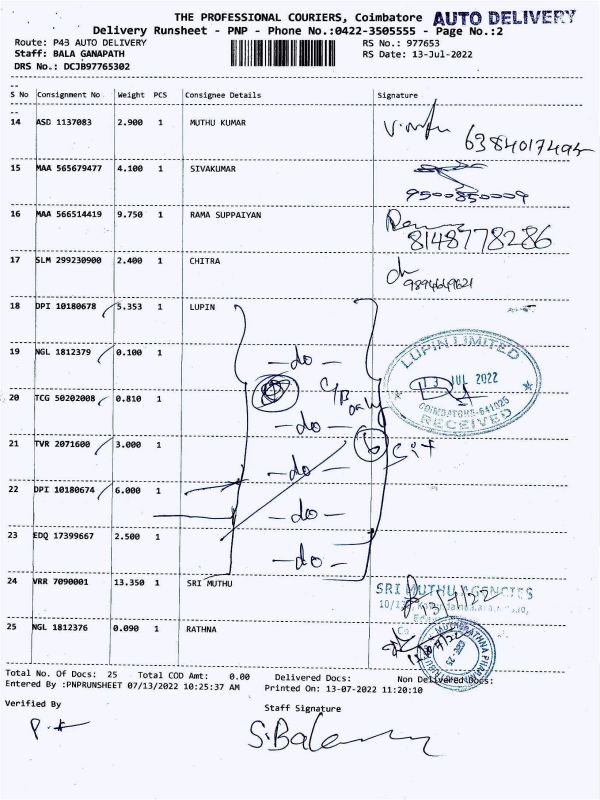 THE PROFESSIONAL COURIERS, Coimbatore AUTO DELIVERY
Delivery Runsheet - PNP - Phone No.:0422-3505555 - Page No.:2
Route: P4B AUTO DELIVERY RS No.: 977653
Staff: BALA GANAPATH RS Date: 13-Jul-2022
DRS No.: DCJB97765302
S No Consignment No Weight PCS Consignee Details Signature
14 ASD 1137083 2.900 1 MUTHU KUMAR
15 MAA 565679477 4.100 1 SIVAKUMAR
9500850009
16 MAA 566514419 9.750 1 RAMA SUPPAIYAN
8148778286
17 SLM 299230900 2.400 1 CHITRA
9894649621
18 DPI 10180678 5.353 1 LUPIN
LUPIN LIMITED
19 NGL 1812379 0.100 1 -do-
13 JUL 2022
20 TCG 50202008 0.810 1
COIMBATORE-641025
RECEIVED
-do-
21 TVR 2071600 3.000 1
6
-do-
22 DPI 10180674 6.000 1
-do-
23 EDQ 17399667 2.500 1
-do-
24 VRR 7090001 13.350 1 SRI MUTHU
SRI MUTHU AGENCIES
13/7/22
25 NGL 1812376 0.090 1 RATHNA
Total No. Of Docs: 25 Total COD Amt: 0.00 Delivered Docs: Non Delivered Docs:
Entered By :PNPRUNSHEET 07/13/2022 10:25:37 AM Printed On: 13-07-2022 11:20:10
Verified By Staff Signature
S.Bala